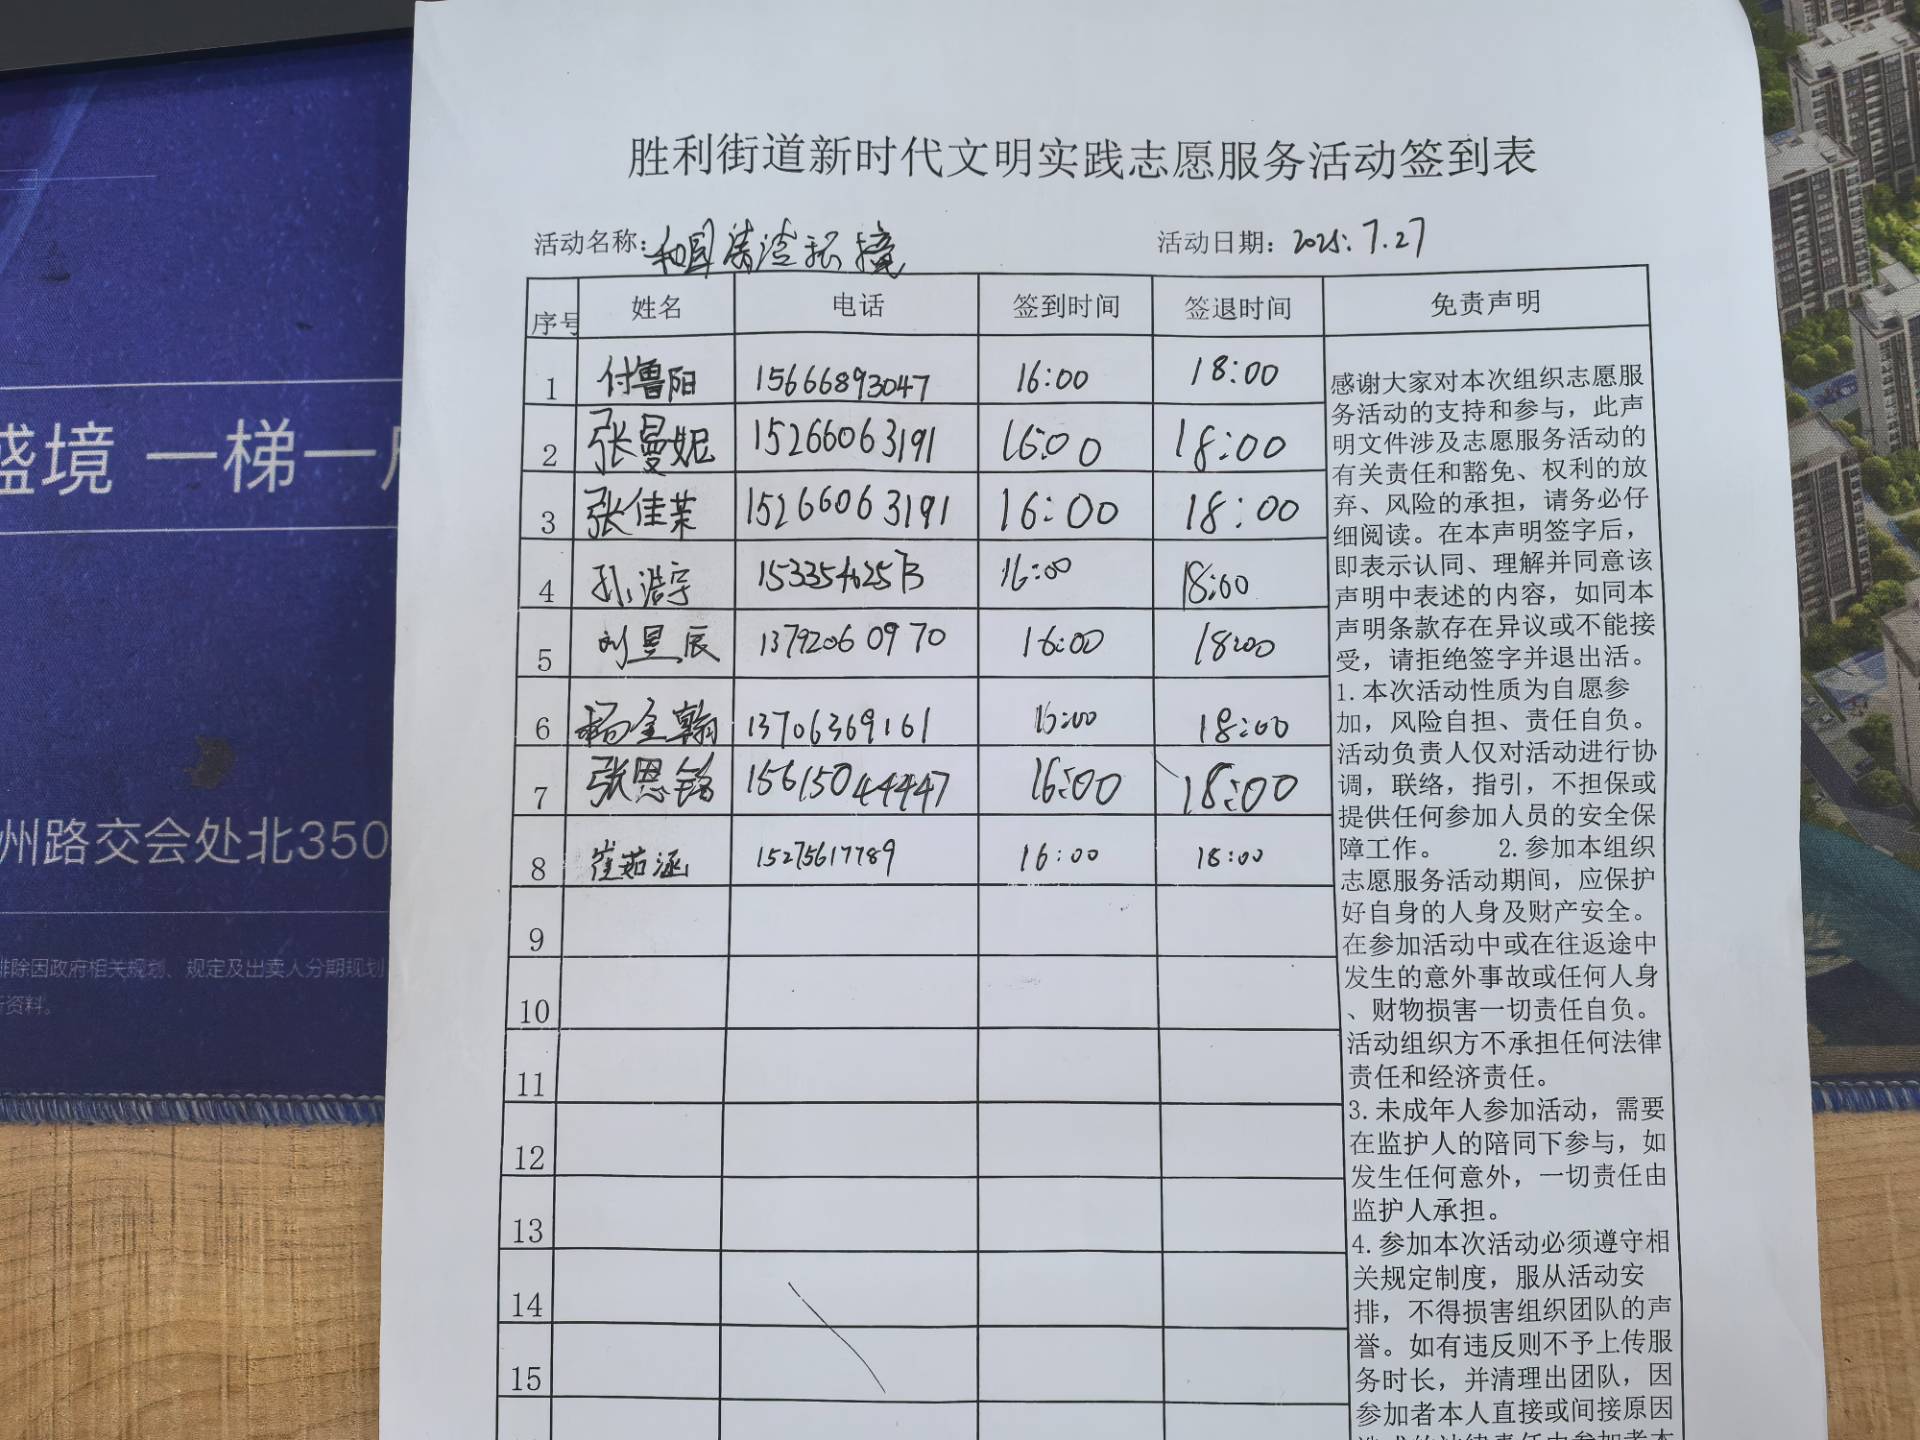 胜利街道新时代文明实践志愿服务活动签到表
活动名称：和园清洁环境 活动日期：2025.7.27
序号 姓名 电话 签到时间 签退时间 免责声明
1 付鲁阳 15666893047 16:00 18:00
2 张曼妮 15266063191 16:00 18:00
3 张佳荣 15266063191 16:00 18:00
4 孙浩宇 16:00 18:00
5 刘昱辰 13792060970 16:00 18:00
6 杨金翰 13706369161 16:00 18:00
7 张恩铭 15615044447 16:00 18:00
8 崔茹涵 15275617789 16:00 18:00
9
10
11
12
13
14
15
感谢大家对本次组织志愿服
务活动的支持和参与，此声
明文件涉及志愿服务活动的
有关责任和豁免、权利的放
弃、风险的承担，请务必仔
细阅读。在本声明签字后，
即表示认同、理解并同意该
声明中表述的内容，如同本
声明条款存在异议或不能接
受，请拒绝签字并退出活。
1.本次活动性质为自愿参
加，风险自担、责任自负。
活动负责人仅对活动进行协
调，联络，指引，不担保或
提供任何参加人员的安全保
障工作。 2.参加本组织
志愿服务活动期间，应保护
好自身的人身及财产安全。
在参加活动中或在往返途中
发生的意外事故或任何人身
、财物损害一切责任自负。
活动组织方不承担任何法律
责任和经济责任。
3.未成年人参加活动，需要
在监护人的陪同下参与，如
发生任何意外，一切责任由
监护人承担。
4.参加本次活动必须遵守相
关规定制度，服从活动安
排，不得损害组织团队的声
誉。如有违反则不予上传服
务时长，并清理出团队，因
参加者本人直接或间接原因
盛境 一梯一
州路交会处北350
排除因政府相关规划、规定及出卖人分期规划
资料。